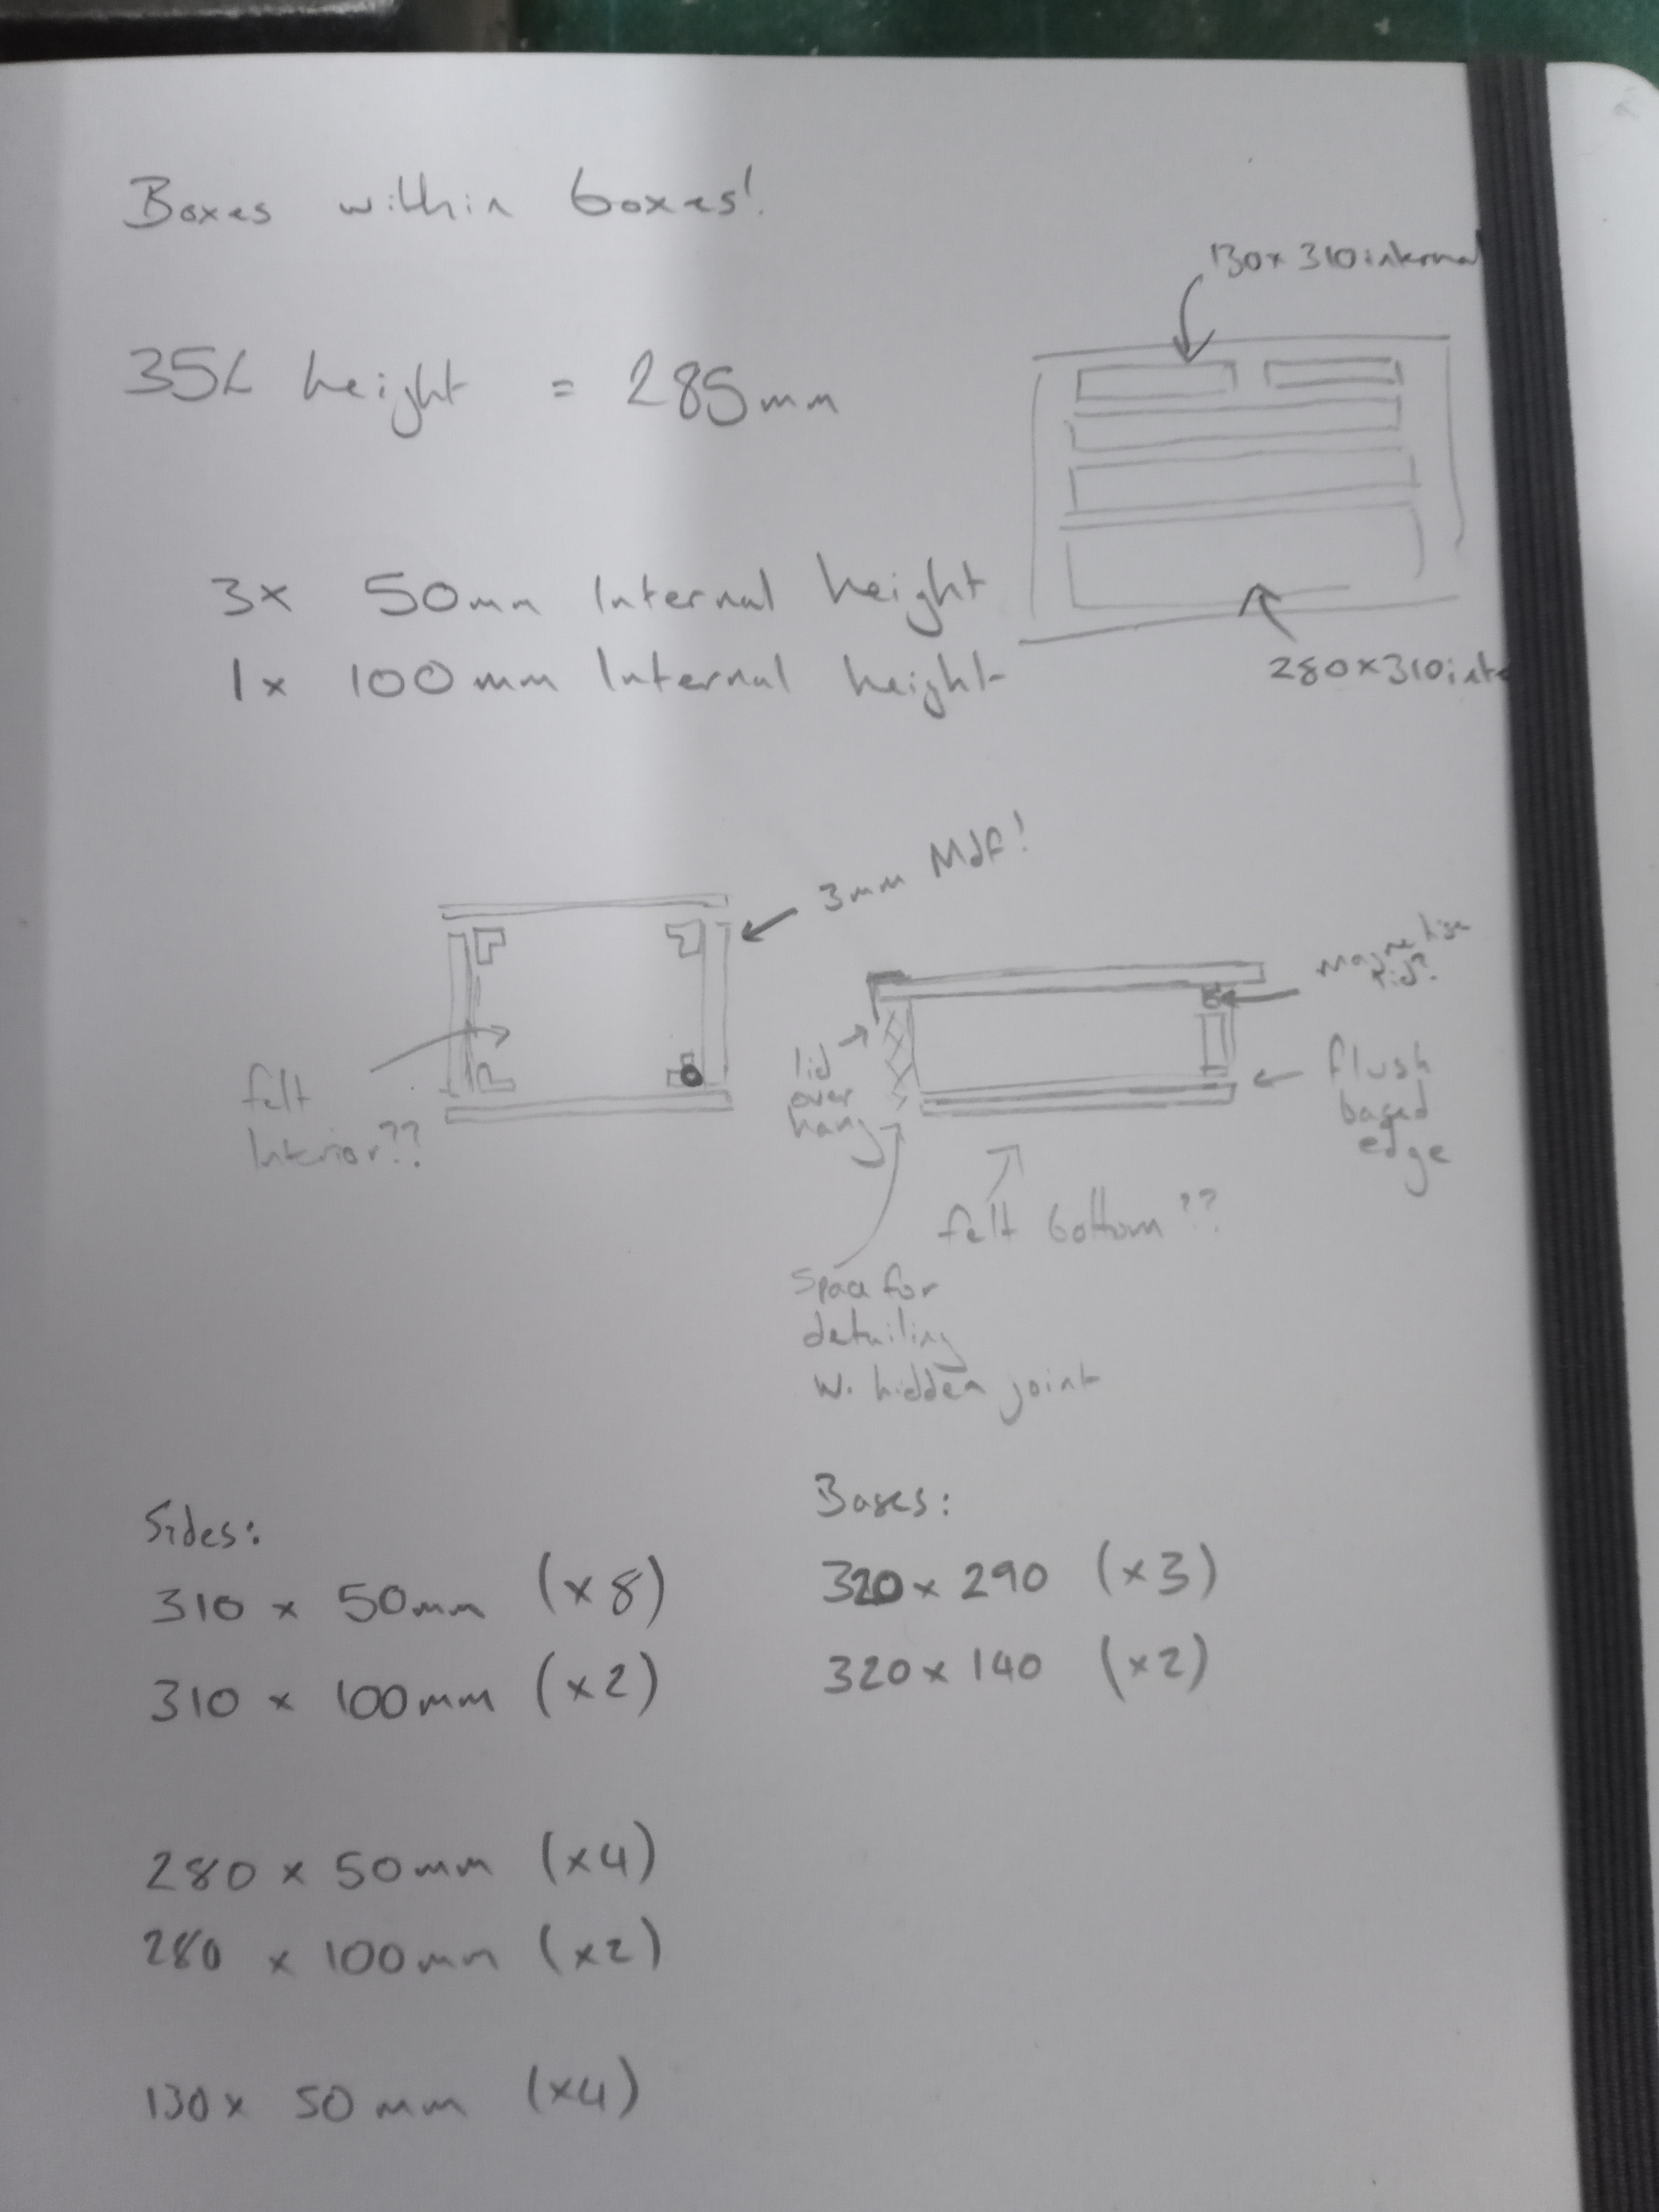 Boxes within boxes!
130 x 310 internal
35L height = 285mm
3x 50mm Internal height
1x 100mm Internal height
280 x 310 inte
3mm Mdf!
lid?
felt
Interior??
lid
over
hang
flush
based
edge
felt bottom??
Space for
detailing
w. hidden joint
Sides:
310 x 50mm (x8)
310 x 100mm (x2)
280 x 50mm (x4)
280 x 100mm (x2)
130 x 50mm (x4)
Bases:
320 x 290 (x3)
320 x 140 (x2)